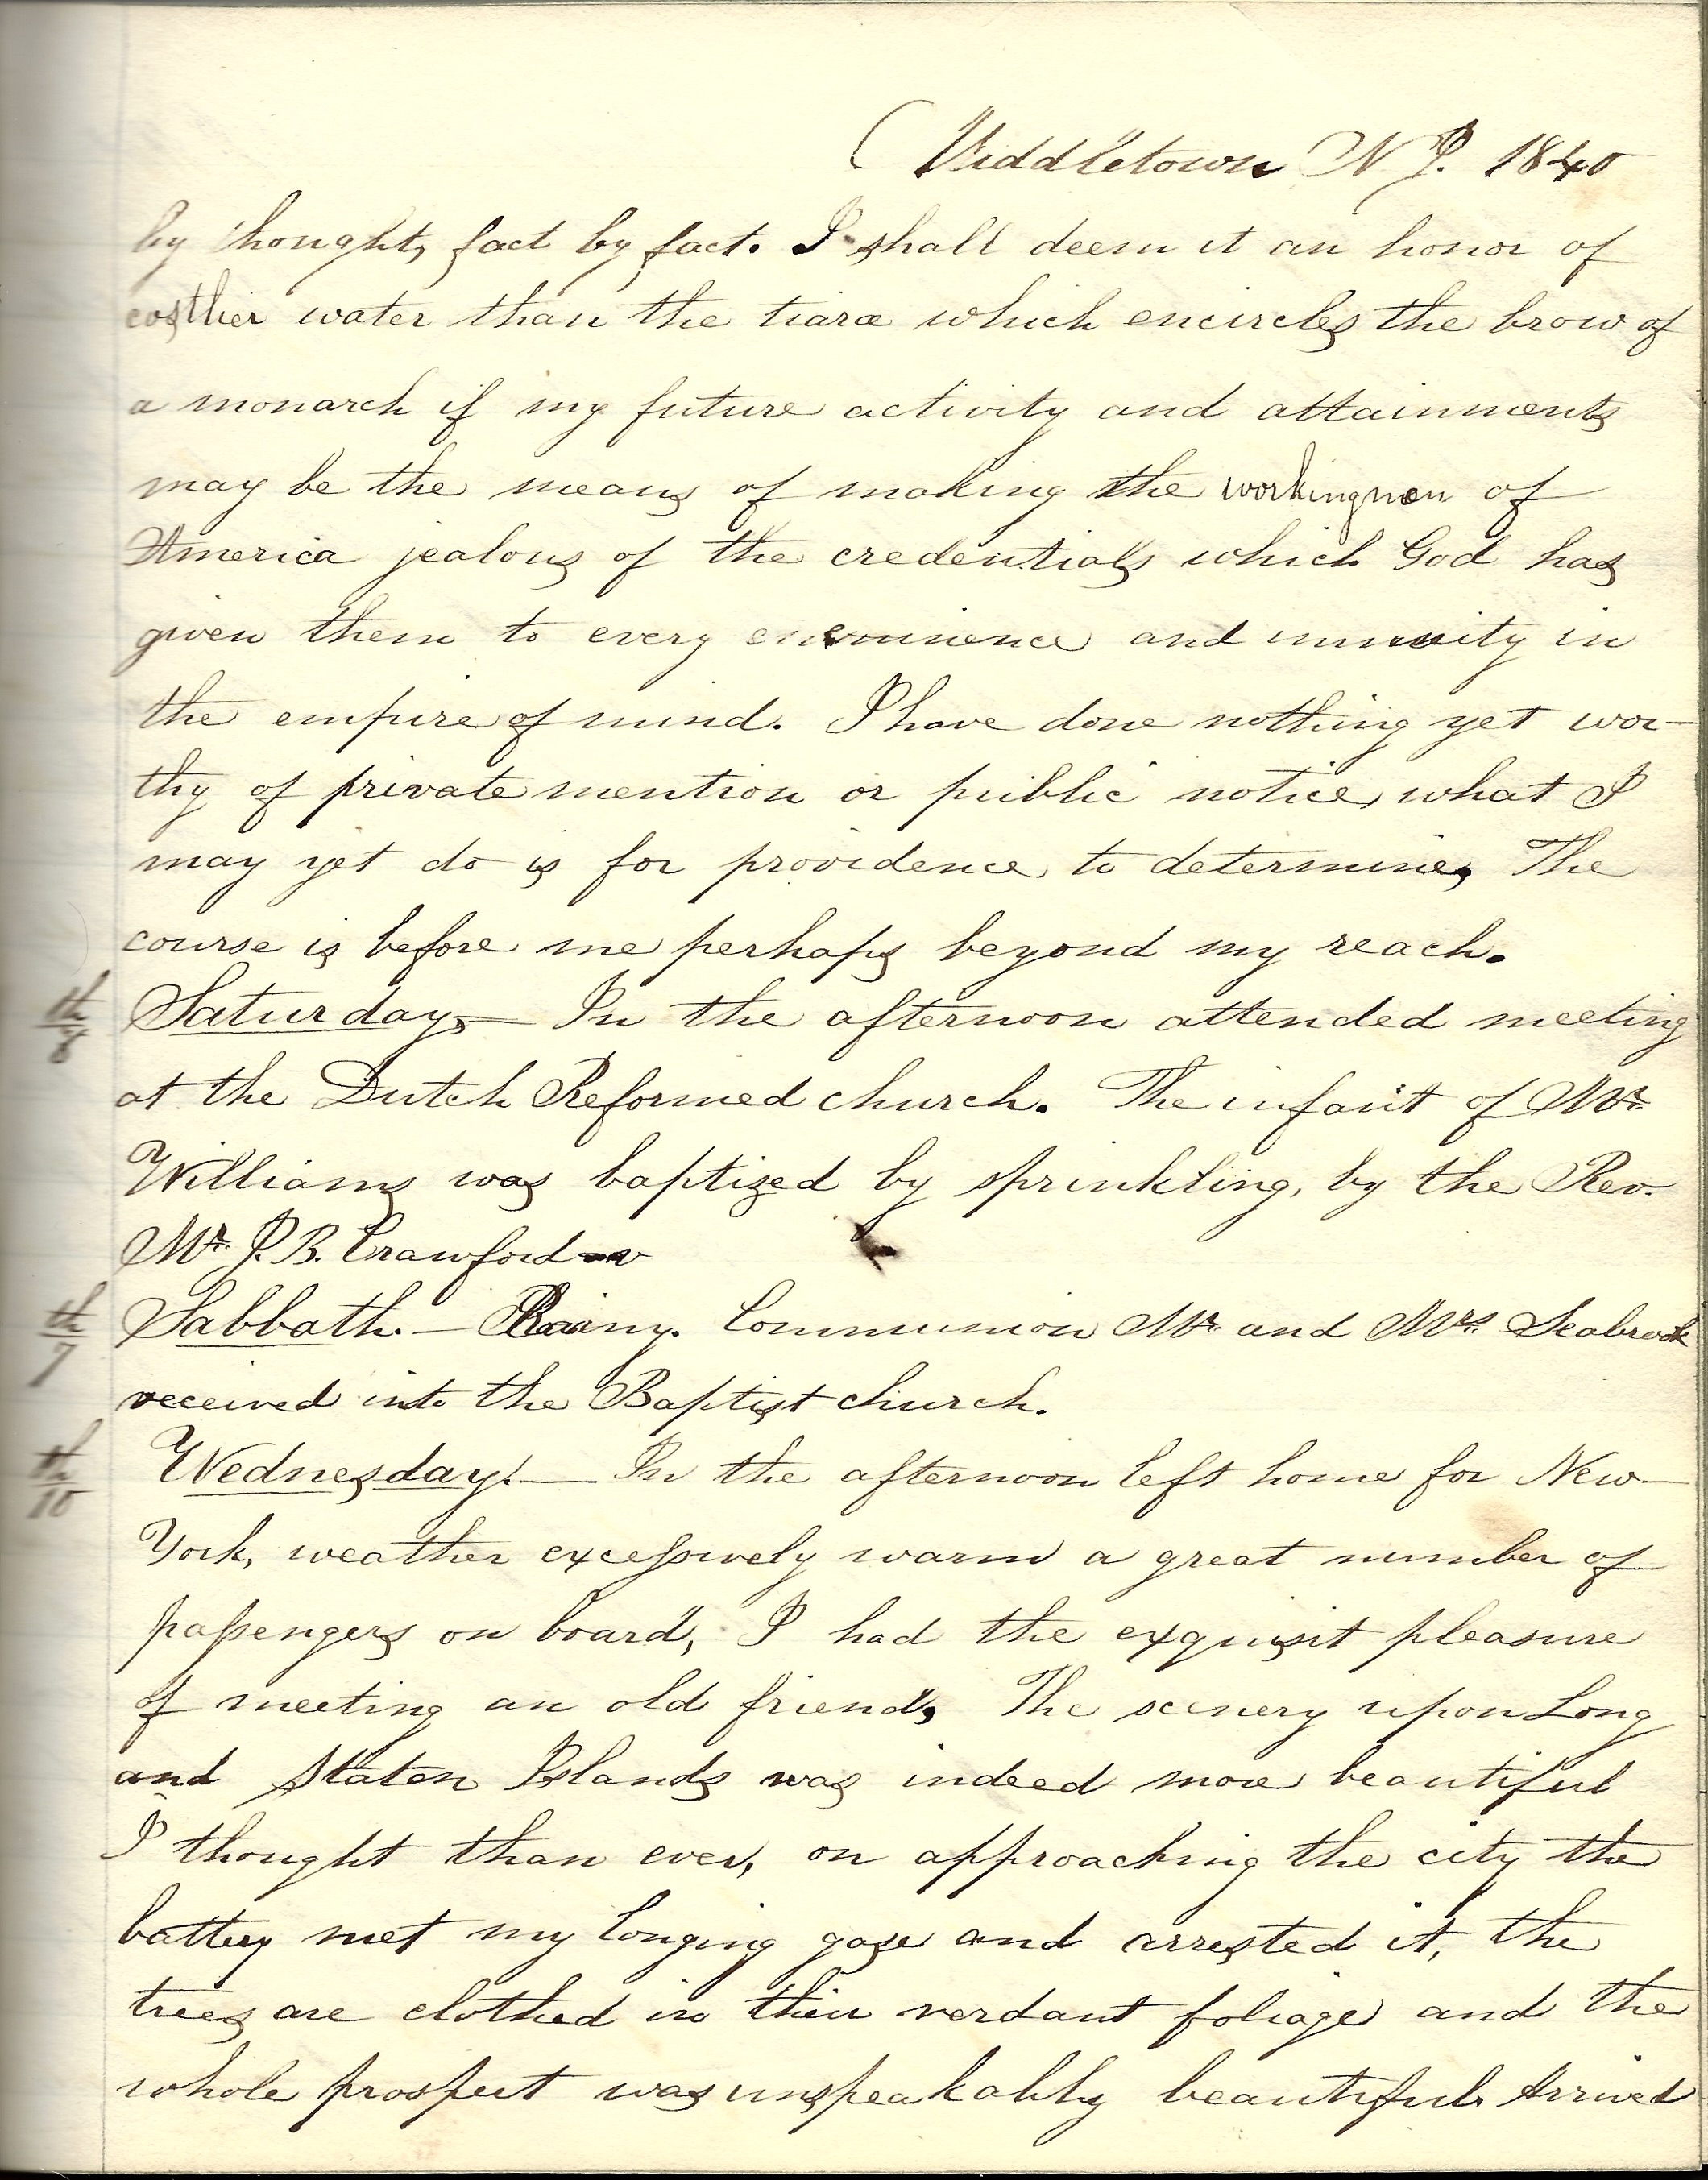 (Middletown N J. 1840
by thought, fact by fact. I shall deem it an honor of
costlier water than the tiara which encircles the brow of
a monarch if my future activity and attainments
may be the means of making the workingmen of
America jealous of the credentials which God has
given them to every eminence and immunity in
the empire of mind. I have done nothing yet wor-
thy of private mention or public notice, what I
may yet do is for providence to determine, The
course is before me perhaps beyond my reach.
th/8 Saturday,— In the afternoon attended meeting
at the Dutch Reformed church. The infant of Mr.
Williams was baptized by sprinkling, by the Rev.
Mr. J. B. Crawford
th/7 Sabbath.— Rainy. Communion Mr and Mrs. Seabrook
received into the Baptist church.
th/10 Wednesday.— In the afternoon left home for New-
York, weather excessively warm a great number of
passengers on board, I had the exquisit pleasure
of meeting an old friend, The scenery upon Long
and Staten Islands was indeed more beautiful
I thought than ever, on approaching the city the
battery met my longing gaze and arrested it, the
trees are clothed in their verdant foliage and the
whole prospect was unspeakably beautiful. Arrived